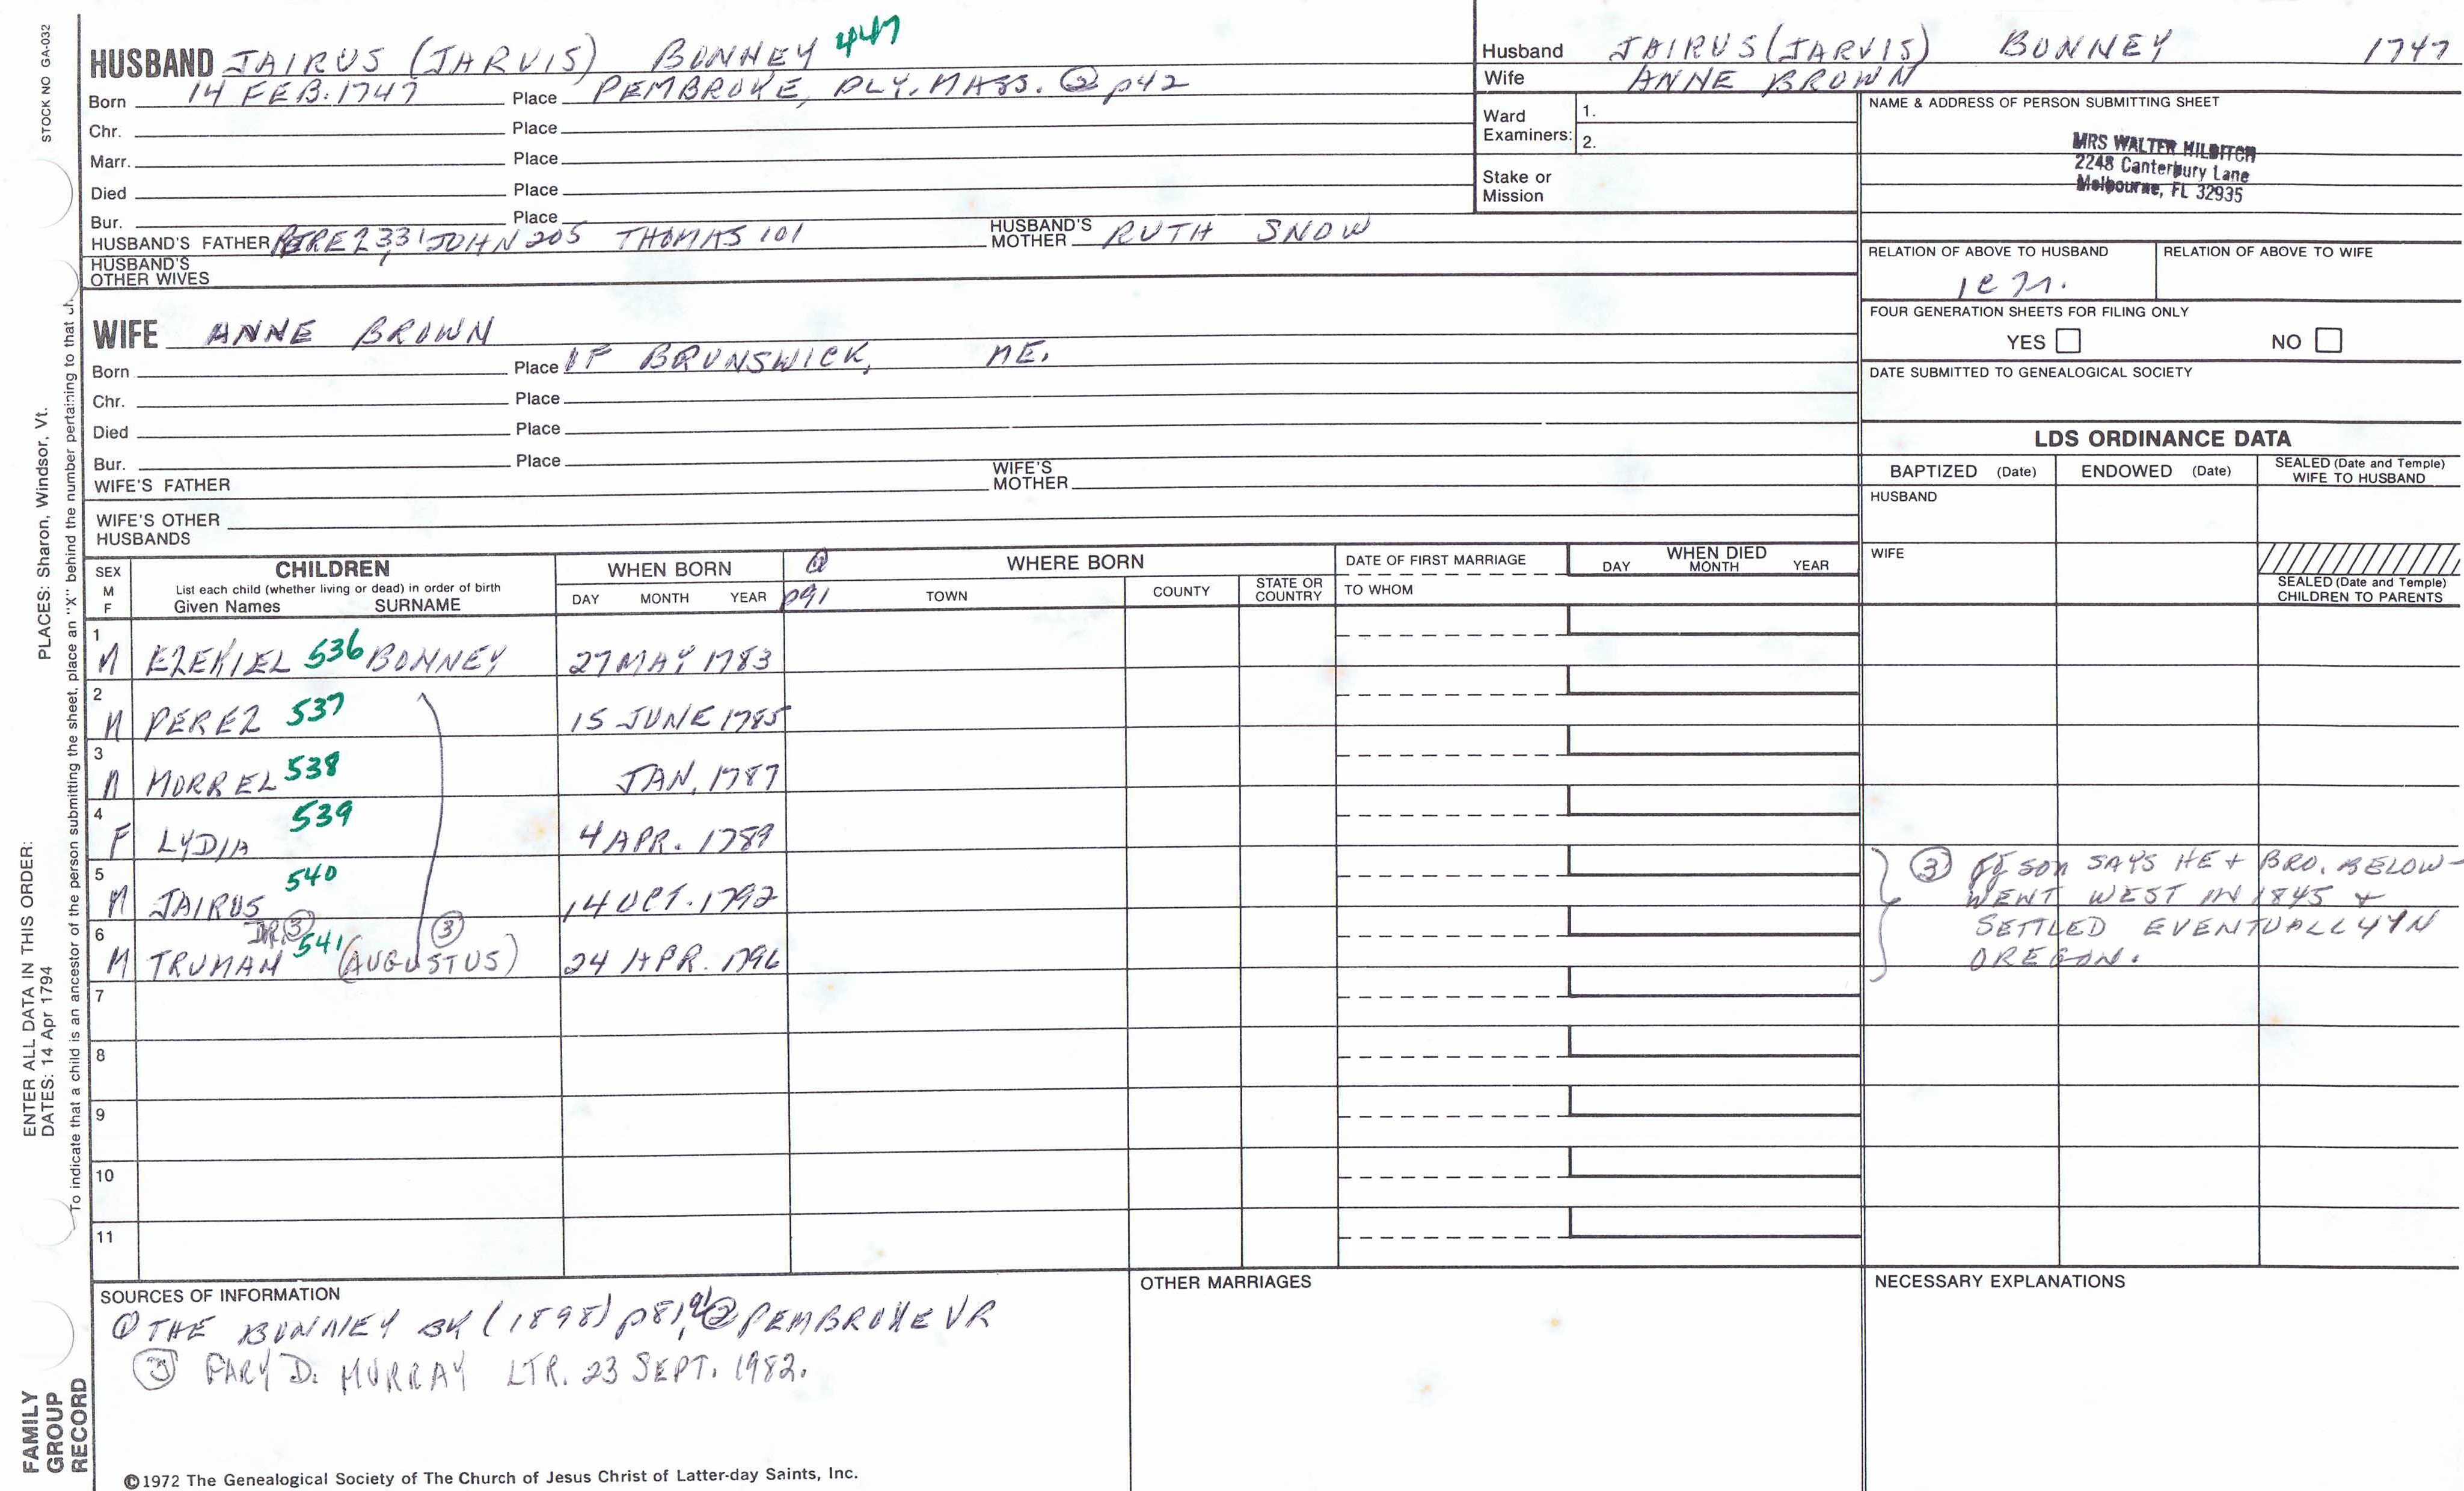 STOCK NO GA-032
HUSBAND JAIRUS (JARVIS) BONNEY 447
Born 14 FEB. 1747 Place PEMBROKE, PLY. MASS. ② p42
Chr. Place
Marr. Place
Died Place
Bur. Place
HUSBAND'S FATHER PEREZ 331 JOHN 205 THOMAS 101 HUSBAND'S MOTHER RUTH SNOW
HUSBAND'S OTHER WIVES
WIFE ANNE BROWN
Born Place OF BRUNSWICK, ME.
Chr. Place
Died Place
Bur. Place
WIFE'S FATHER WIFE'S MOTHER
WIFE'S OTHER HUSBANDS
Husband JAIRUS (JARVIS) BONNEY 1747
Wife ANNE BROWN
Ward Examiners: 1.
2.
Stake or Mission
NAME & ADDRESS OF PERSON SUBMITTING SHEET
MRS WALTER HILDITCH
2248 Canterbury Lane
Melbourne, FL 32935
RELATION OF ABOVE TO HUSBAND RELATION OF ABOVE TO WIFE
FOUR GENERATION SHEETS FOR FILING ONLY
YES NO
DATE SUBMITTED TO GENEALOGICAL SOCIETY
LDS ORDINANCE DATA
BAPTIZED (Date) ENDOWED (Date) SEALED (Date and Temple) WIFE TO HUSBAND
HUSBAND
WIFE
SEALED (Date and Temple) CHILDREN TO PARENTS
SEX M F
CHILDREN
List each child (whether living or dead) in order of birth
Given Names SURNAME
WHEN BORN
DAY MONTH YEAR
② p91
WHERE BORN
TOWN COUNTY STATE OR COUNTRY
DATE OF FIRST MARRIAGE
TO WHOM
WHEN DIED
DAY MONTH YEAR
1 M EZEKIEL 536 BONNEY 27 MAY 1783
2 M PEREZ 537 15 JUNE 1785
3 M MORREL 538 JAN. 1787
4 F LYDIA 539 4 APR. 1789
5 M JAIRUS 540 14 OCT. 1792
6 M DR. ③ TRUMAN 541 (AUGUSTUS) ③ 24 APR. 1796
7
8
9
10
11
③ SON SAYS HE + BRO. BELOW-
WENT WEST IN 1845 +
SETTLED EVENTUALLY IN
OREGON.
SOURCES OF INFORMATION
① THE BONNEY BK (1898) p81, 91 ② PEMBROKE VR
③ GARY D. MURRAY LTR. 23 SEPT. 1982.
OTHER MARRIAGES
NECESSARY EXPLANATIONS
©1972 The Genealogical Society of The Church of Jesus Christ of Latter-day Saints, Inc.
FAMILY GROUP RECORD
ENTER ALL DATA IN THIS ORDER:
DATES: 14 Apr 1794
PLACES: Sharon, Windsor, Vt.
To indicate that a child is an ancestor of the person submitting the sheet, place an "X" behind the number pertaining to that